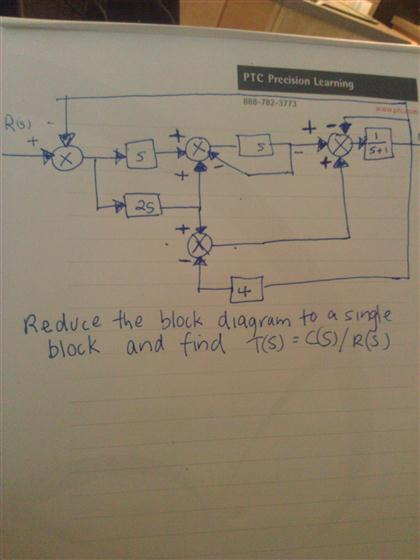 PTC Precision Learning
888-782-3773
www.ptc.com
R(s) + -
+ + -
+ - + - +
X S X S X 1/S+1
2S
+
- X
4
Reduce the block diagram to a single
block and find T(S) = C(S)/R(S)